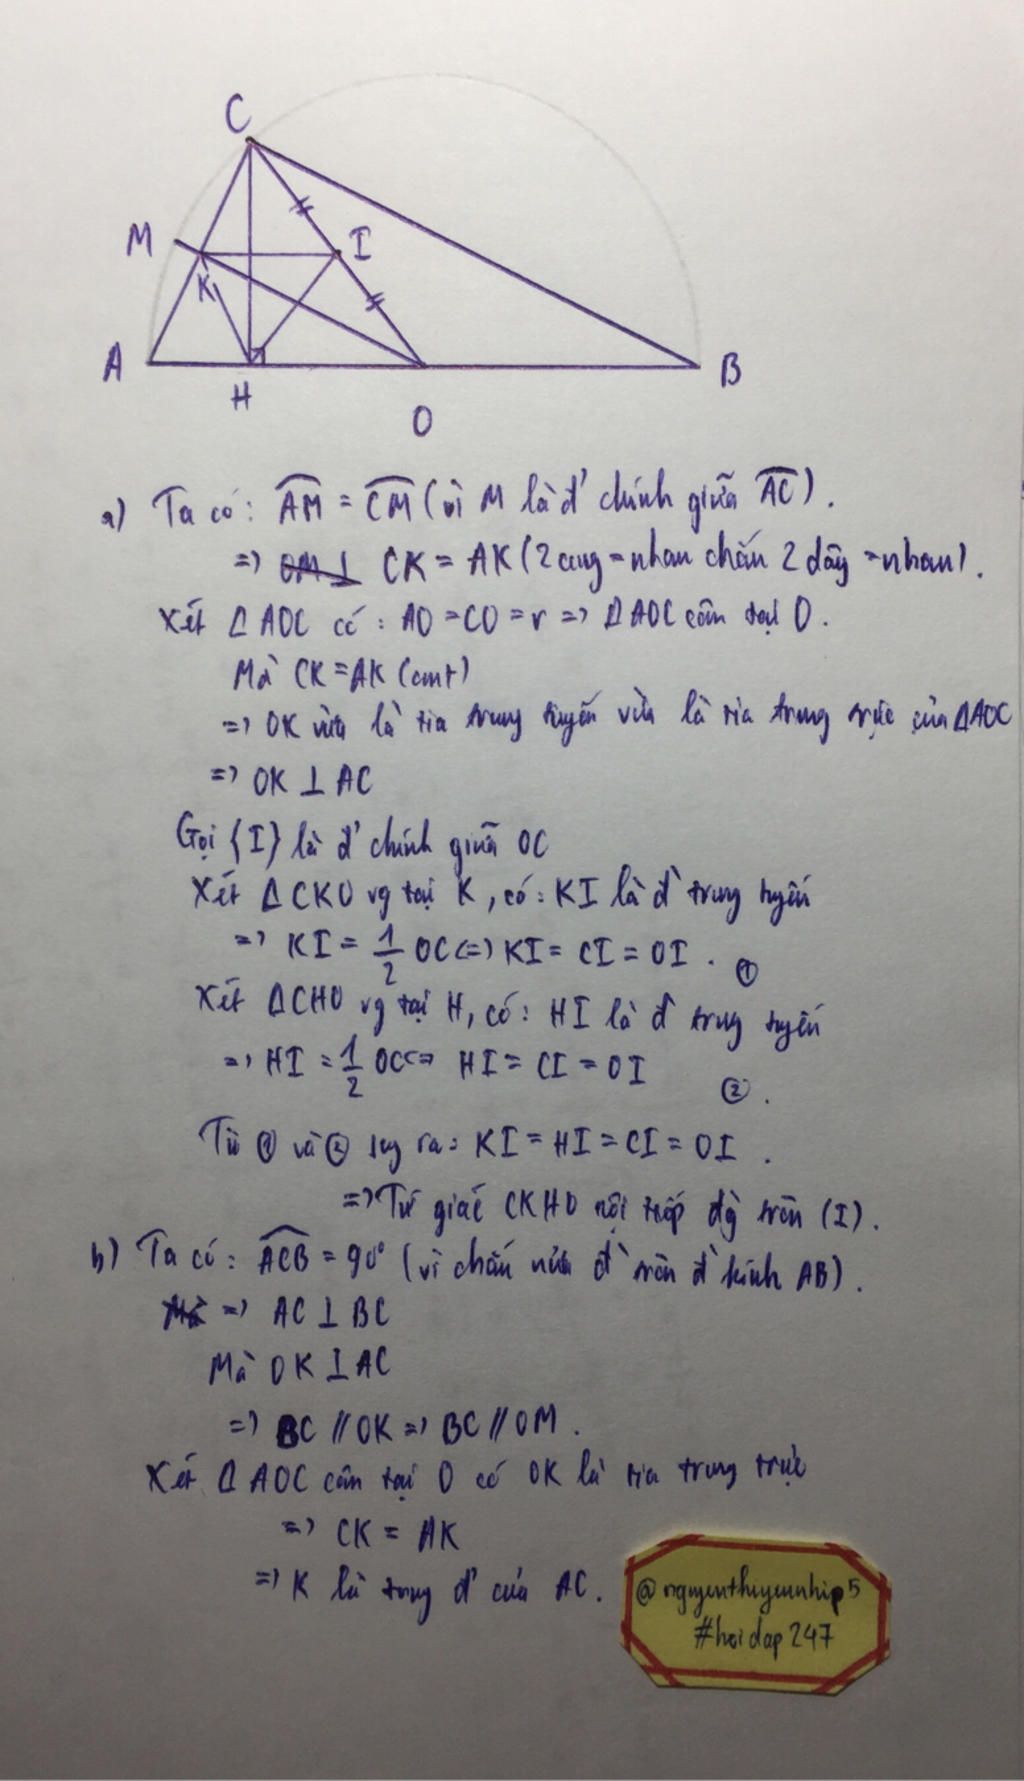 C
M
I
K
A
H
O
B
a) Ta có: AM = CM (vì M là đ' chính giữa AC).
=> OM ⊥ CK = AK (2 cung = nhau chắn 2 dây = nhau).
Xét Δ AOC có: AO = CO = r => Δ AOC cân tại O.
Mà CK = AK (cmt)
=> OK vừa là tia trung tuyến vừa là tia trung trực của Δ AOC
=> OK ⊥ AC
Gọi {I} là đ' chính giữa OC
Xét Δ CKO vg tại K, có: KI là đ` trung tuyến
=> KI = 1/2 OC <=> KI = CI = OI. ①
Xét Δ CHO vg tại H, có: HI là đ` trung tuyến
=> HI = 1/2 OC <=> HI = CI = OI ②.
Từ ① và ② suy ra: KI = HI = CI = OI.
=> Tứ giác CKHO nội tiếp đg tròn (I).
b) Ta có: ACB = 90° (vì chắn nửa đ` tròn đ` kính AB).
Mà => AC ⊥ BC
Mà OK ⊥ AC
=> BC // OK => BC // OM.
Xét Δ AOC cân tại O có OK là tia trung trực
=> CK = AK
=> K là trung đ' của AC.
@nguyenthiyennhip5
#hoidap247